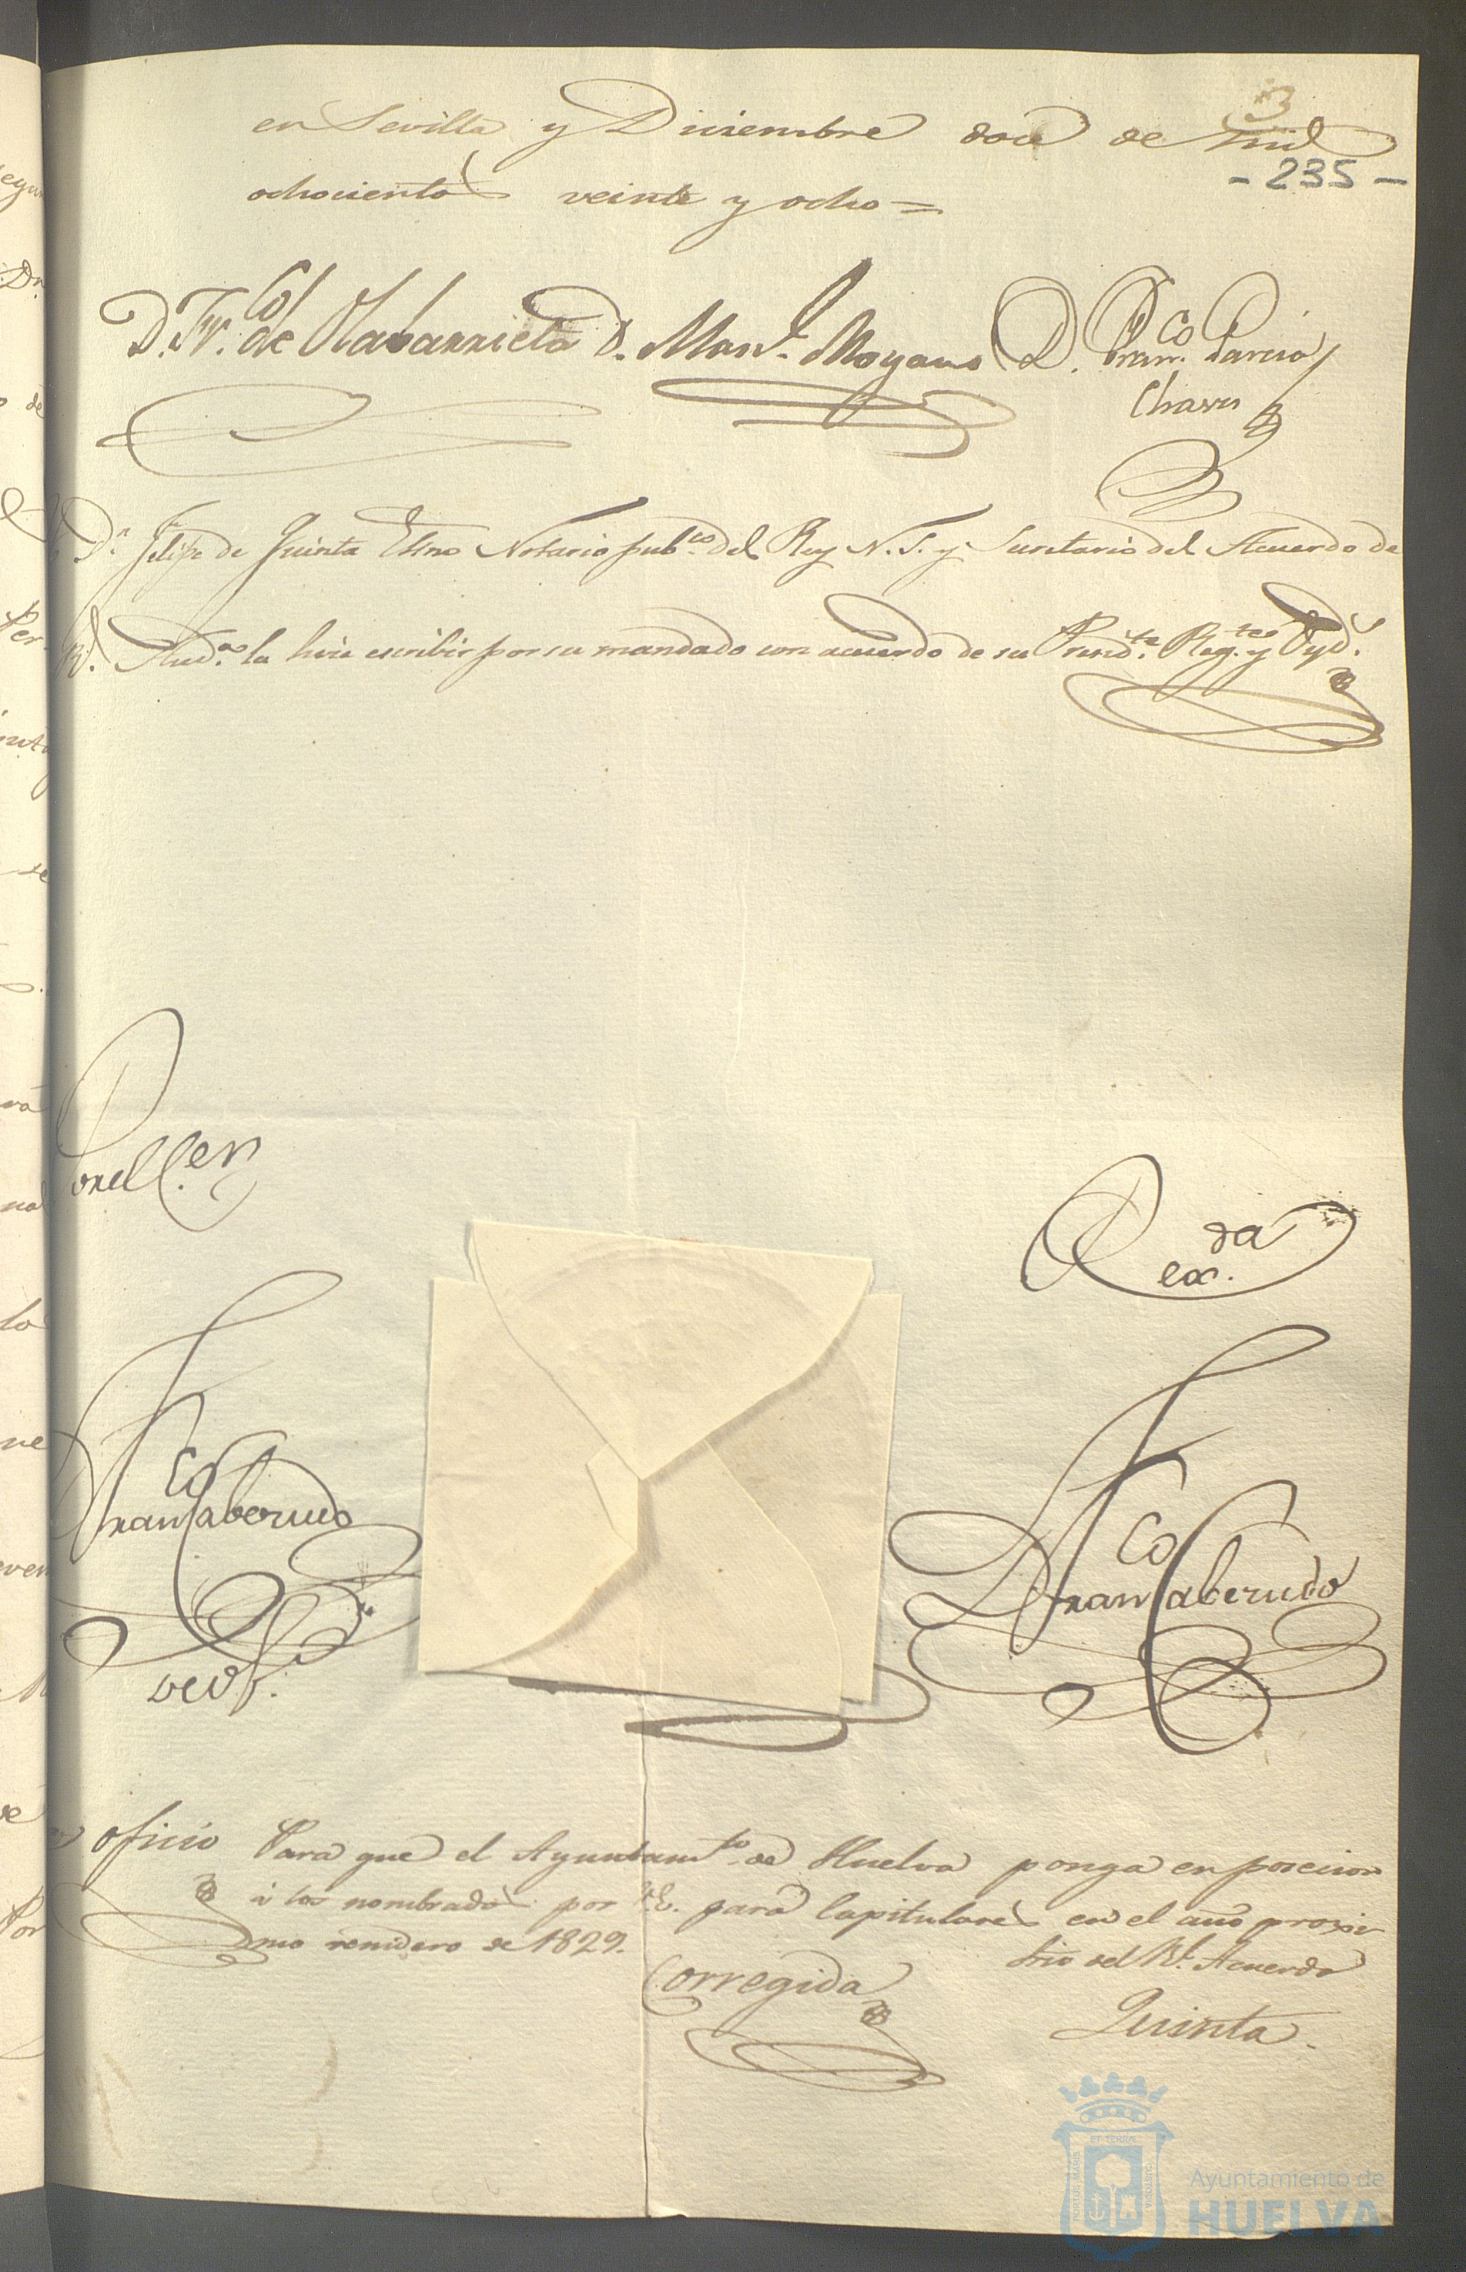 3
en Sevilla y Diciembre doce de mil
- 235 -
ochocientos veinte y ocho =
D. Fr.co de Olabarrieta D. Man.l Moyano D. Fran.co Garcia
Chaves
D.n Felipe de Quinta Esno Notario pub.co del Rey N. S. y Secretario del Acuerdo de
Aud.a la hice escribir por su mandado con acuerdo de su Presid.te Reg.te y Oyd.s
Reg.da
Fran.co Taberudo
Fran.co Taberudo
oficio Para que el Ayuntam.to de Huelva ponga en posecion
á los nombrados por V.E. para Capitulares en el año proxi
mo venidero de 1829.
Srio del R.l Acuerdo
Corregida
Quinta.
Ayuntamiento de
HUELVA